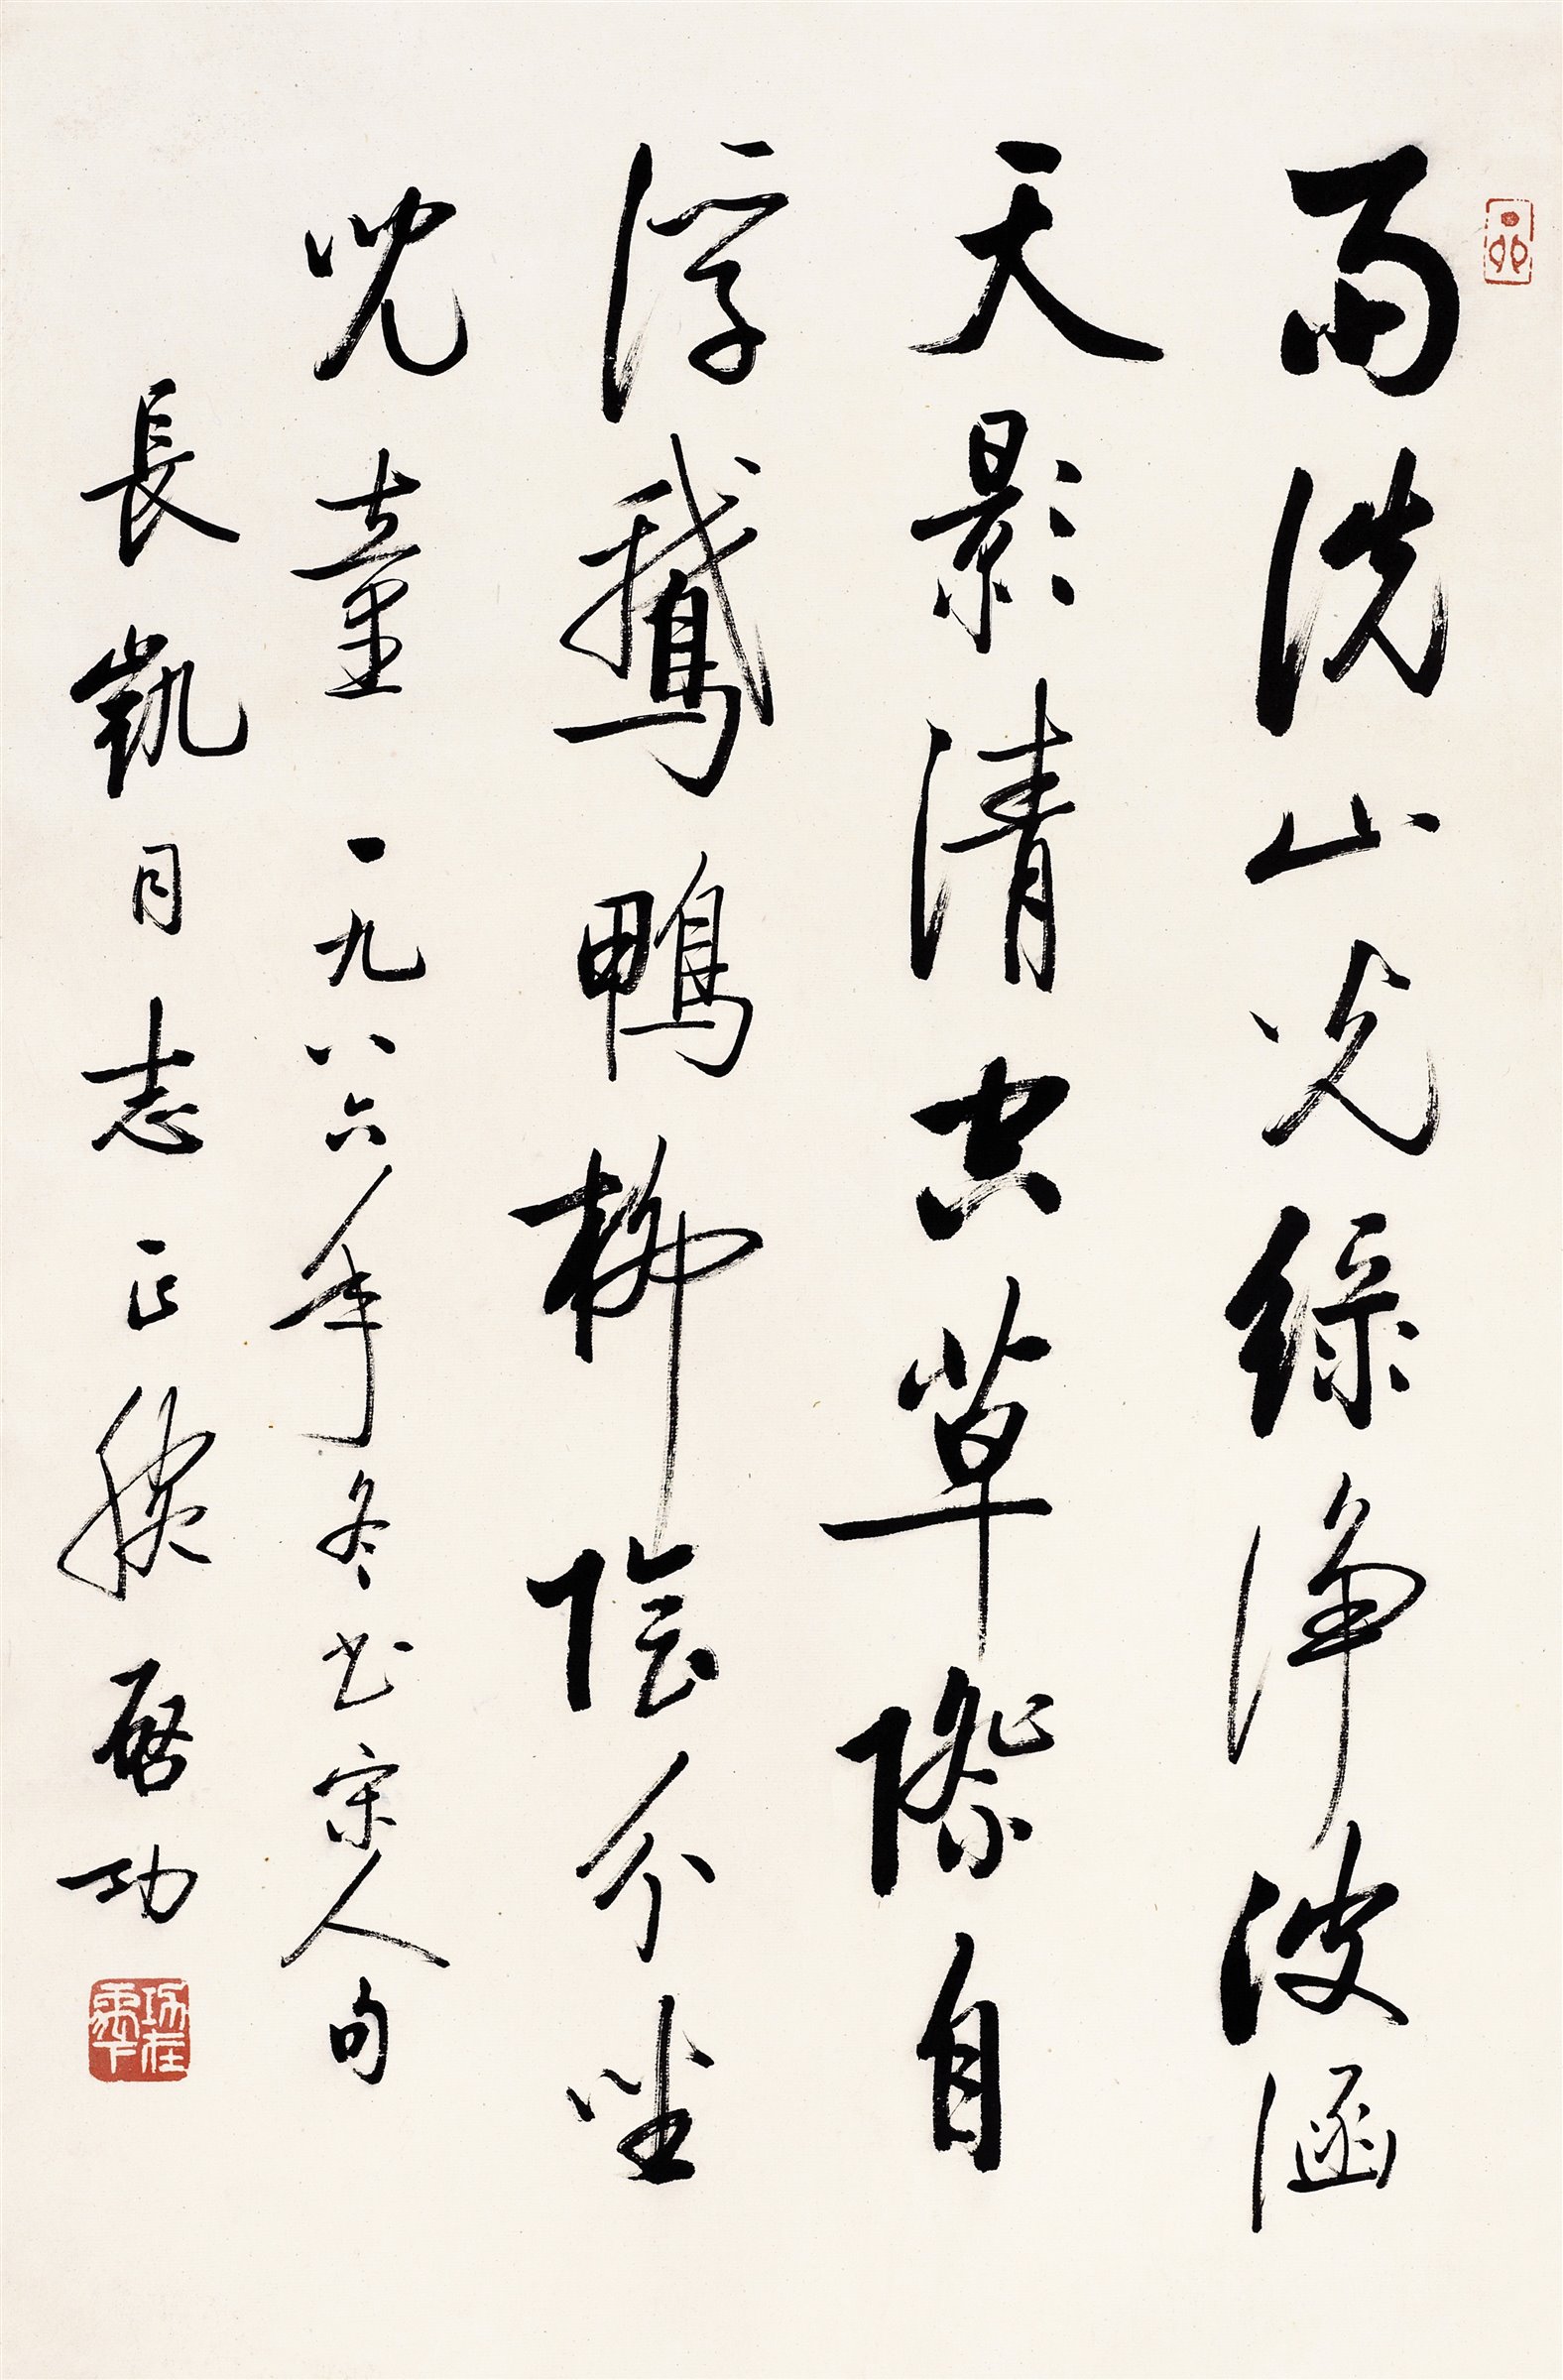 雨洗山光綠淨波涵
天影清空草際自
浮鵝鴨柳陰分坐
兒童 一九八六年冬書宋人句
長凱同志正腕 啟功